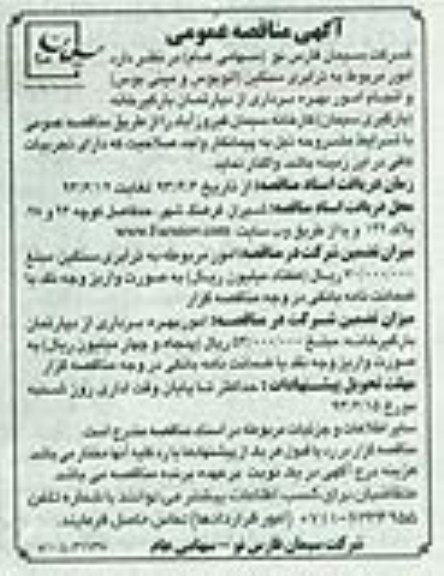 آگهی مناقصه عمومی
شرکت سیمان فارس نو (سهامی عام) در نظر دارد
امور مربوط به ترابری سنگین (اتوبوس و مینی بوس)
و انجام امور بهره برداری از دپارتمان بارگیرخانه
(بارگیری سیمان) کارخانه سیمان فیروزآباد را از طریق مناقصه عمومی
با شرایط مشروحه ذیل به پیمانکار واجد صلاحیت که دارای تجربیات
کافی در این زمینه باشد واگذار نماید
زمان دریافت اسناد مناقصه: از تاریخ ۹۳/۲/۳ لغایت ۹۳/۲/۱۲
محل دریافت اسناد مناقصه: شیراز، فرهنگ شهر، حدفاصل کوچه ۴۳ و
پلاک ۱۲۲ و یا از طریق وب سایت
میزان تضمین شرکت در مناقصه: امور مربوطه به ترابری سنگین مبلغ
۷۰/۰۰۰/۰۰۰ ریال (هفتاد میلیون ریال) به صورت واریز وجه نقد یا
ضمانت نامه بانکی در وجه مناقصه گزار
میزان تضمین شرکت در مناقصه: امور بهره برداری از دپارتمان
بارگیرخانه: مبلغ ۵۴/۰۰۰/۰۰۰ ریال (پنجاه و چهار میلیون ریال) به
صورت واریز وجه نقد یا ضمانت نامه بانکی در وجه مناقصه گزار
مهلت تحویل پیشنهادات: حداکثر تا پایان وقت اداری روز شنبه
مورخ
سایر اطلاعات و جزئیات مربوطه در اسناد مناقصه مندرج است.
مناقصه گزار در رد یا قبول هر یک از پیشنهادها یا رد کلیه آنها مختار می باشد.
هزینه درج آگهی در یک نوبت بر عهده برنده مناقصه می باشد.
متقاضیان برای کسب اطلاعات بیشتر می توانند با شماره تلفن
(امور قراردادها) تماس حاصل فرمایند.
شرکت سیمان فارس نو - سهامی عام